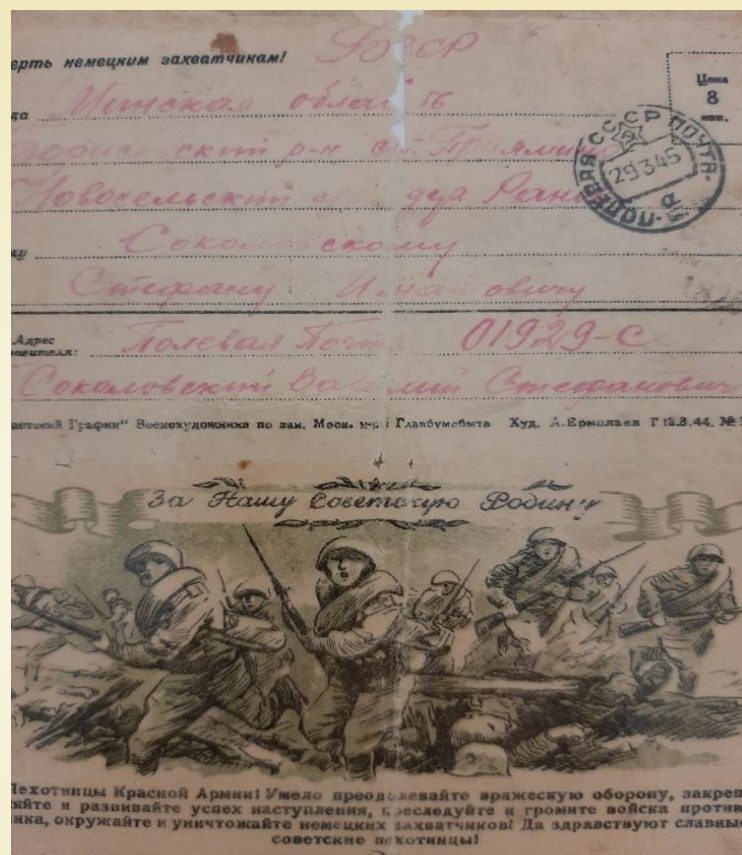 ерть немецким захватчикам! БССР
Цена
8
коп.
да Минская область
ский р-н ст.
Новосельский
ПОЛЕВАЯ ПОЧТА СССР
29 3 45
Соколовскому
Стефану
Адрес
Полевая Почта 01929-С
Соколовский Василий Стефанович
График" Военхудожника по зак. Моск. Главбумсбыта Худ. А. Ермолаев Г 12.8.44.
За Нашу Советскую Родину
Пехотинцы Красной Армии! Умело преодолевайте вражескую оборону, закреп-
яйте и развивайте успех наступления, преследуйте и громите войска против-
ника, окружайте и уничтожайте немецких захватчиков! Да здравствуют славные
советские пехотинцы!